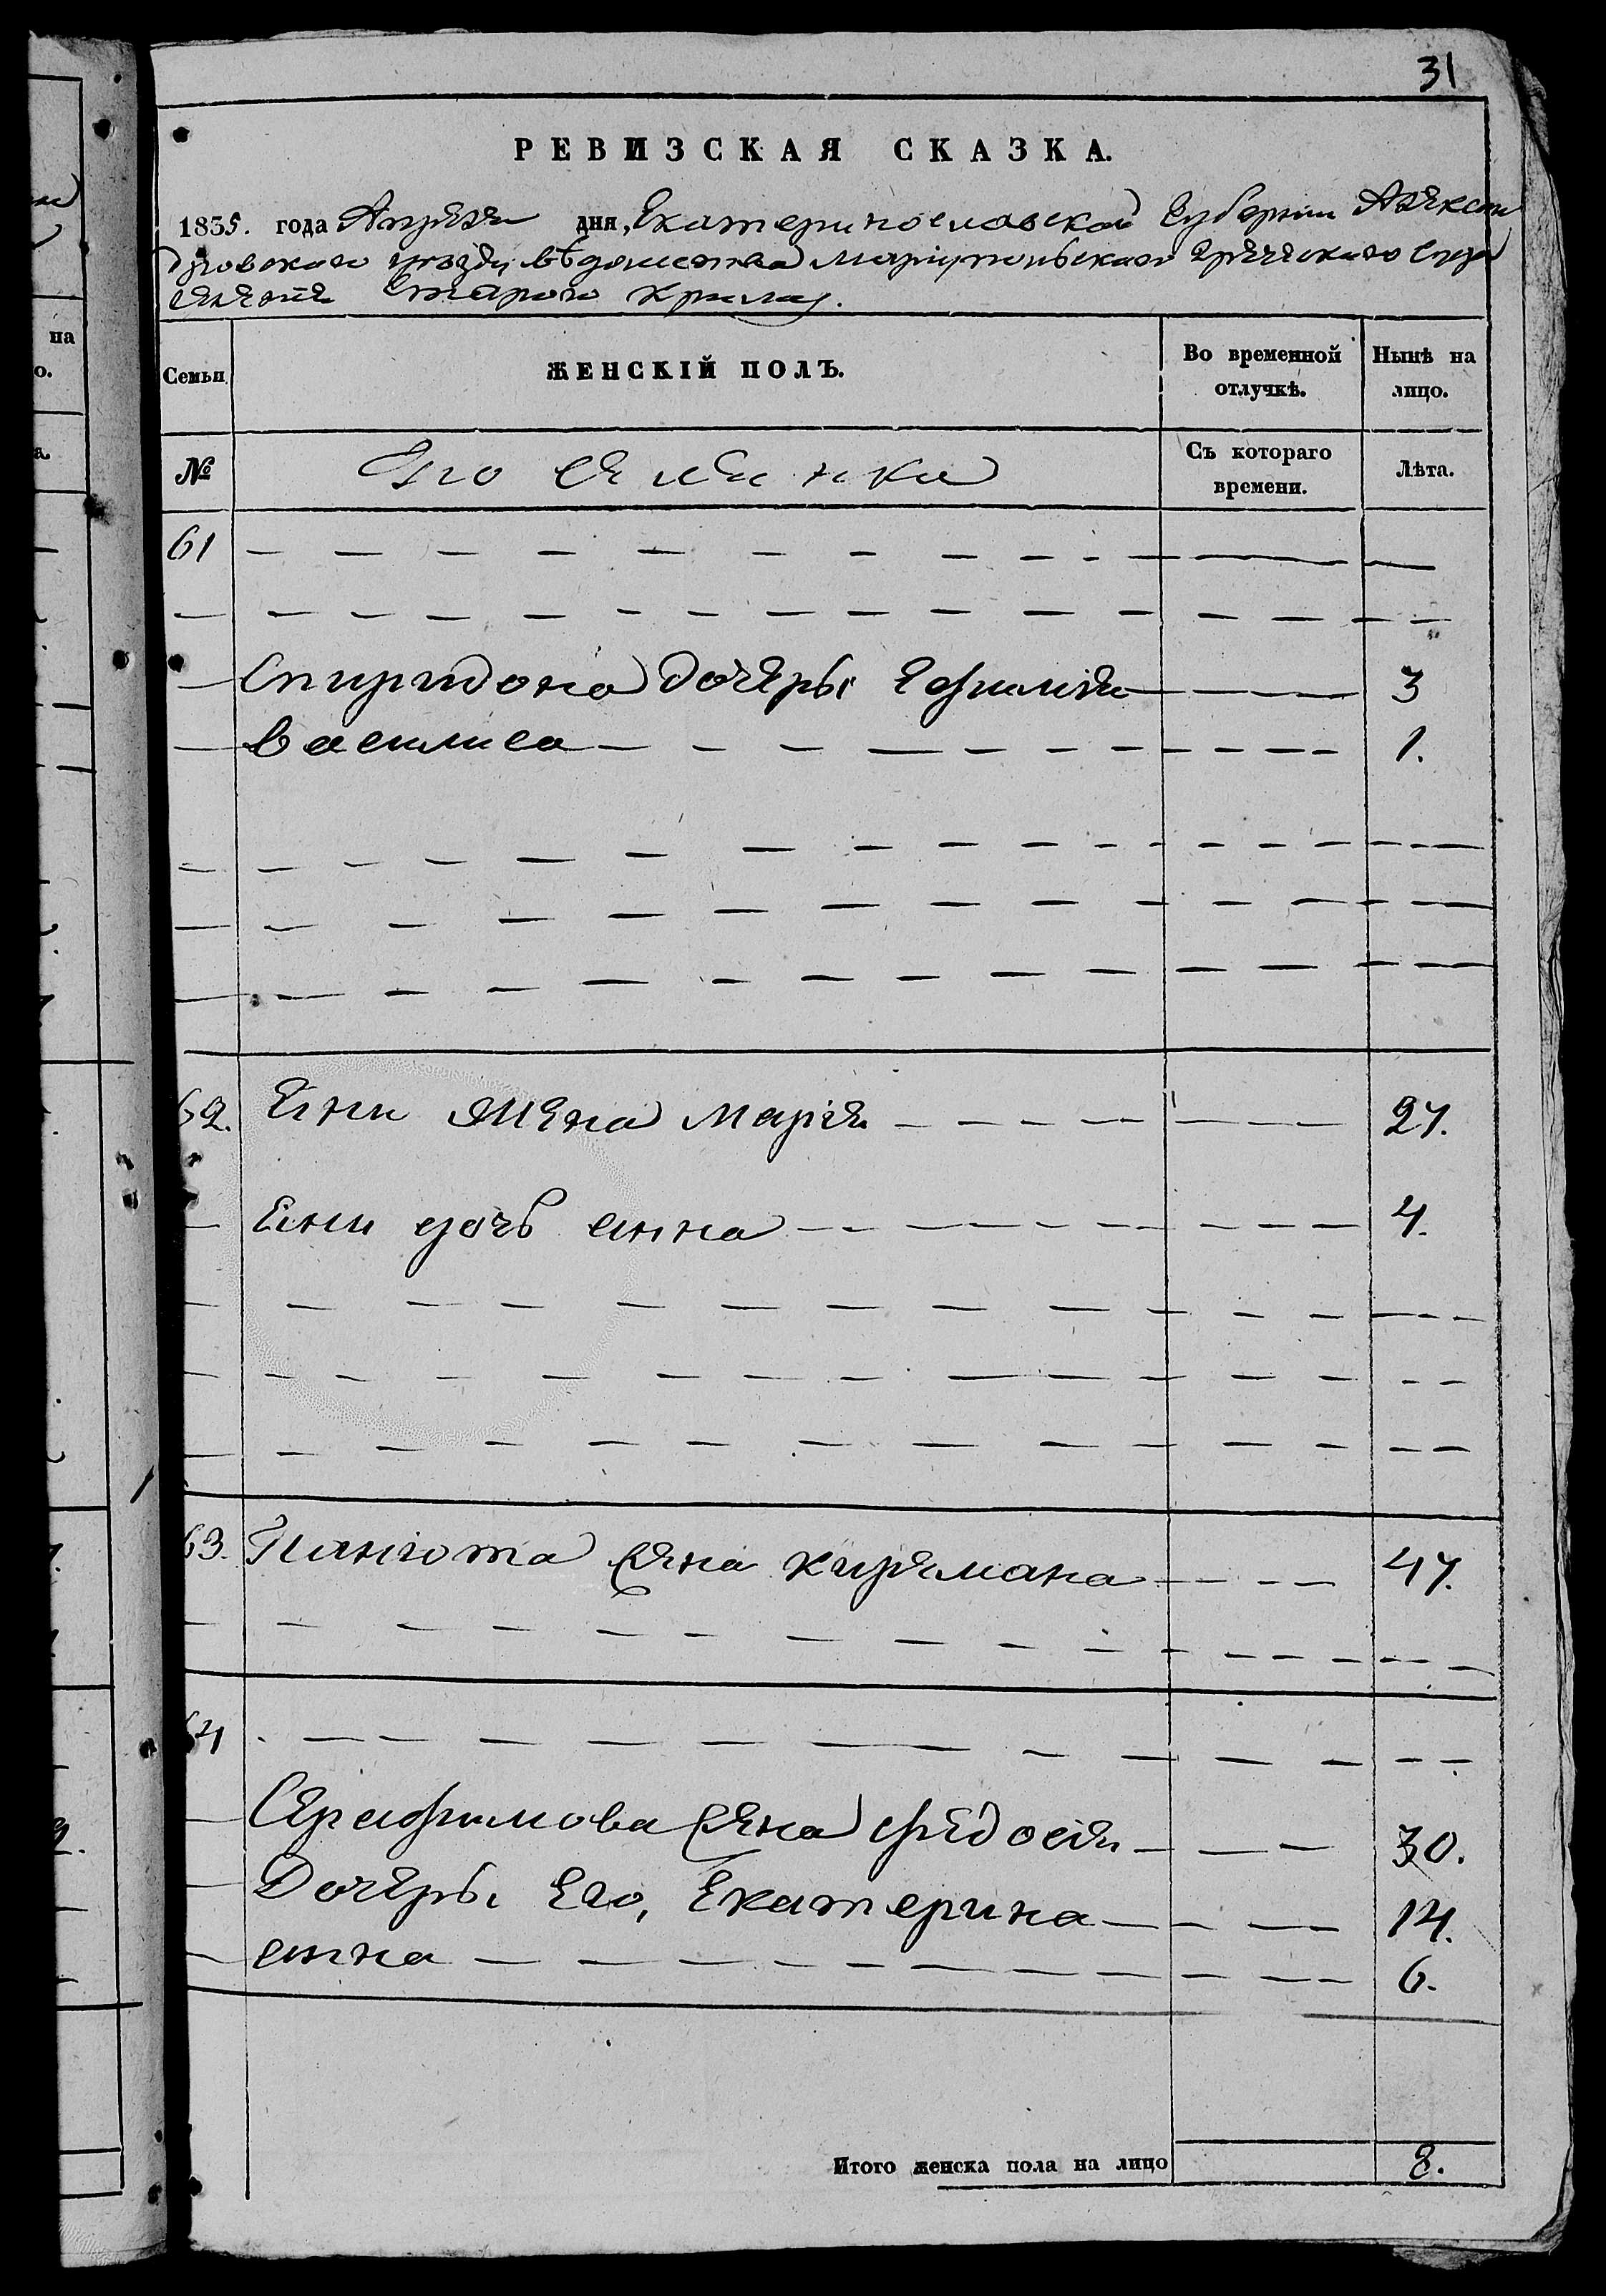 31
РЕВИЗСКАЯ СКАЗКА.
1835. года Апреля дня, Екатеринославской Губернии Алексан
дровскаго уезда вѣдомства Мариупольскаго Греческаго Суда
селения Старого Крима.
Семьи ЖЕНСКІЙ ПОЛЪ. Во временной отлучкѣ. Нынѣ на лицо.
№ Съ котораго времени. Лѣта.
61
Спиридона дочери Ефимия 3
Василиса 1.
62. Ени жена Мария 27.
Ени дочь анна 4.
63. Панаиота жена Кирьмана 47.
64
Серафимова жена Федосия 30.
Дочери Его, Екатерина 14.
анна 6.
Итого женска пола на лицо 8.